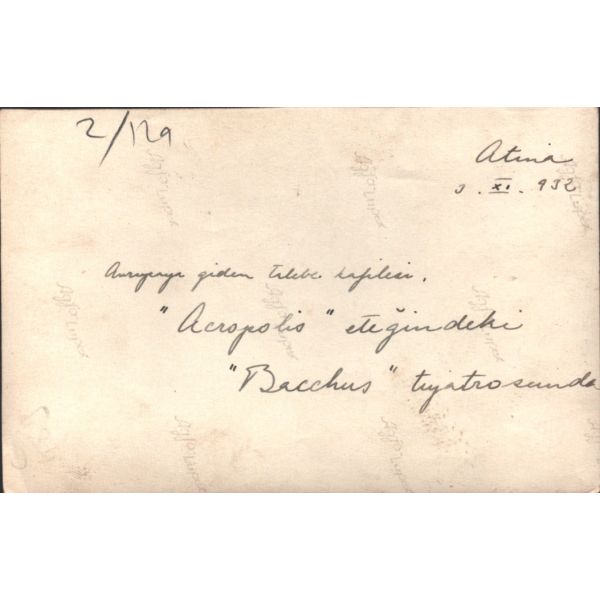 2/129
Atina
3. XI. 932
Avrupaya giden talebe kafilesi.
"Acropolis" eteğindeki
"Bacchus" tiyatrosunda